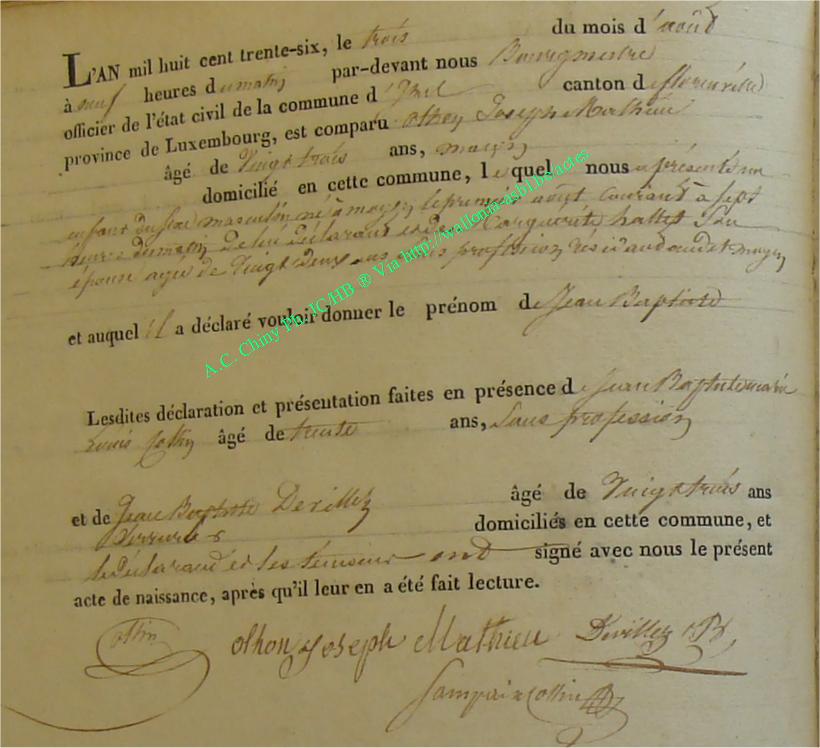 L'AN mil huit cent trente-six, le trois du mois d'août
à neuf heures du matin par-devant nous Bourgmestre
officier de l'état civil de la commune d' canton de florenville
province de Luxembourg, est comparu othon Joseph Mathieu
âgé de Vingt trois ans, maçon
domicilié en cette commune, lequel nous a présenté un
enfant du sexe masculin né à moyen le premier août, courant à sept
heures du matin de lui déclarant et de hattet Son
épouse agée de Vingt deux ans sans profession résidand audit moyen
et auquel il a déclaré vouloir donner le prénom de Jean Baptiste
Lesdites déclaration et présentation faites en présence de Jean Baptiste marie
Louis Collin âgé de trente ans, Sans profession
et de Jean Baptiste Devillez âgé de Vingt trois ans
Serrurier domiciliés en cette commune, et
le déclarant et les témoins ont signé avec nous le présent
acte de naissance, après qu'il leur en a été fait lecture.
Collin othon Joseph Mathieu Devillez JB
Collin
A.C. Chiny Ph. JCHB ® Via http://wallonia-asbl.be/actes